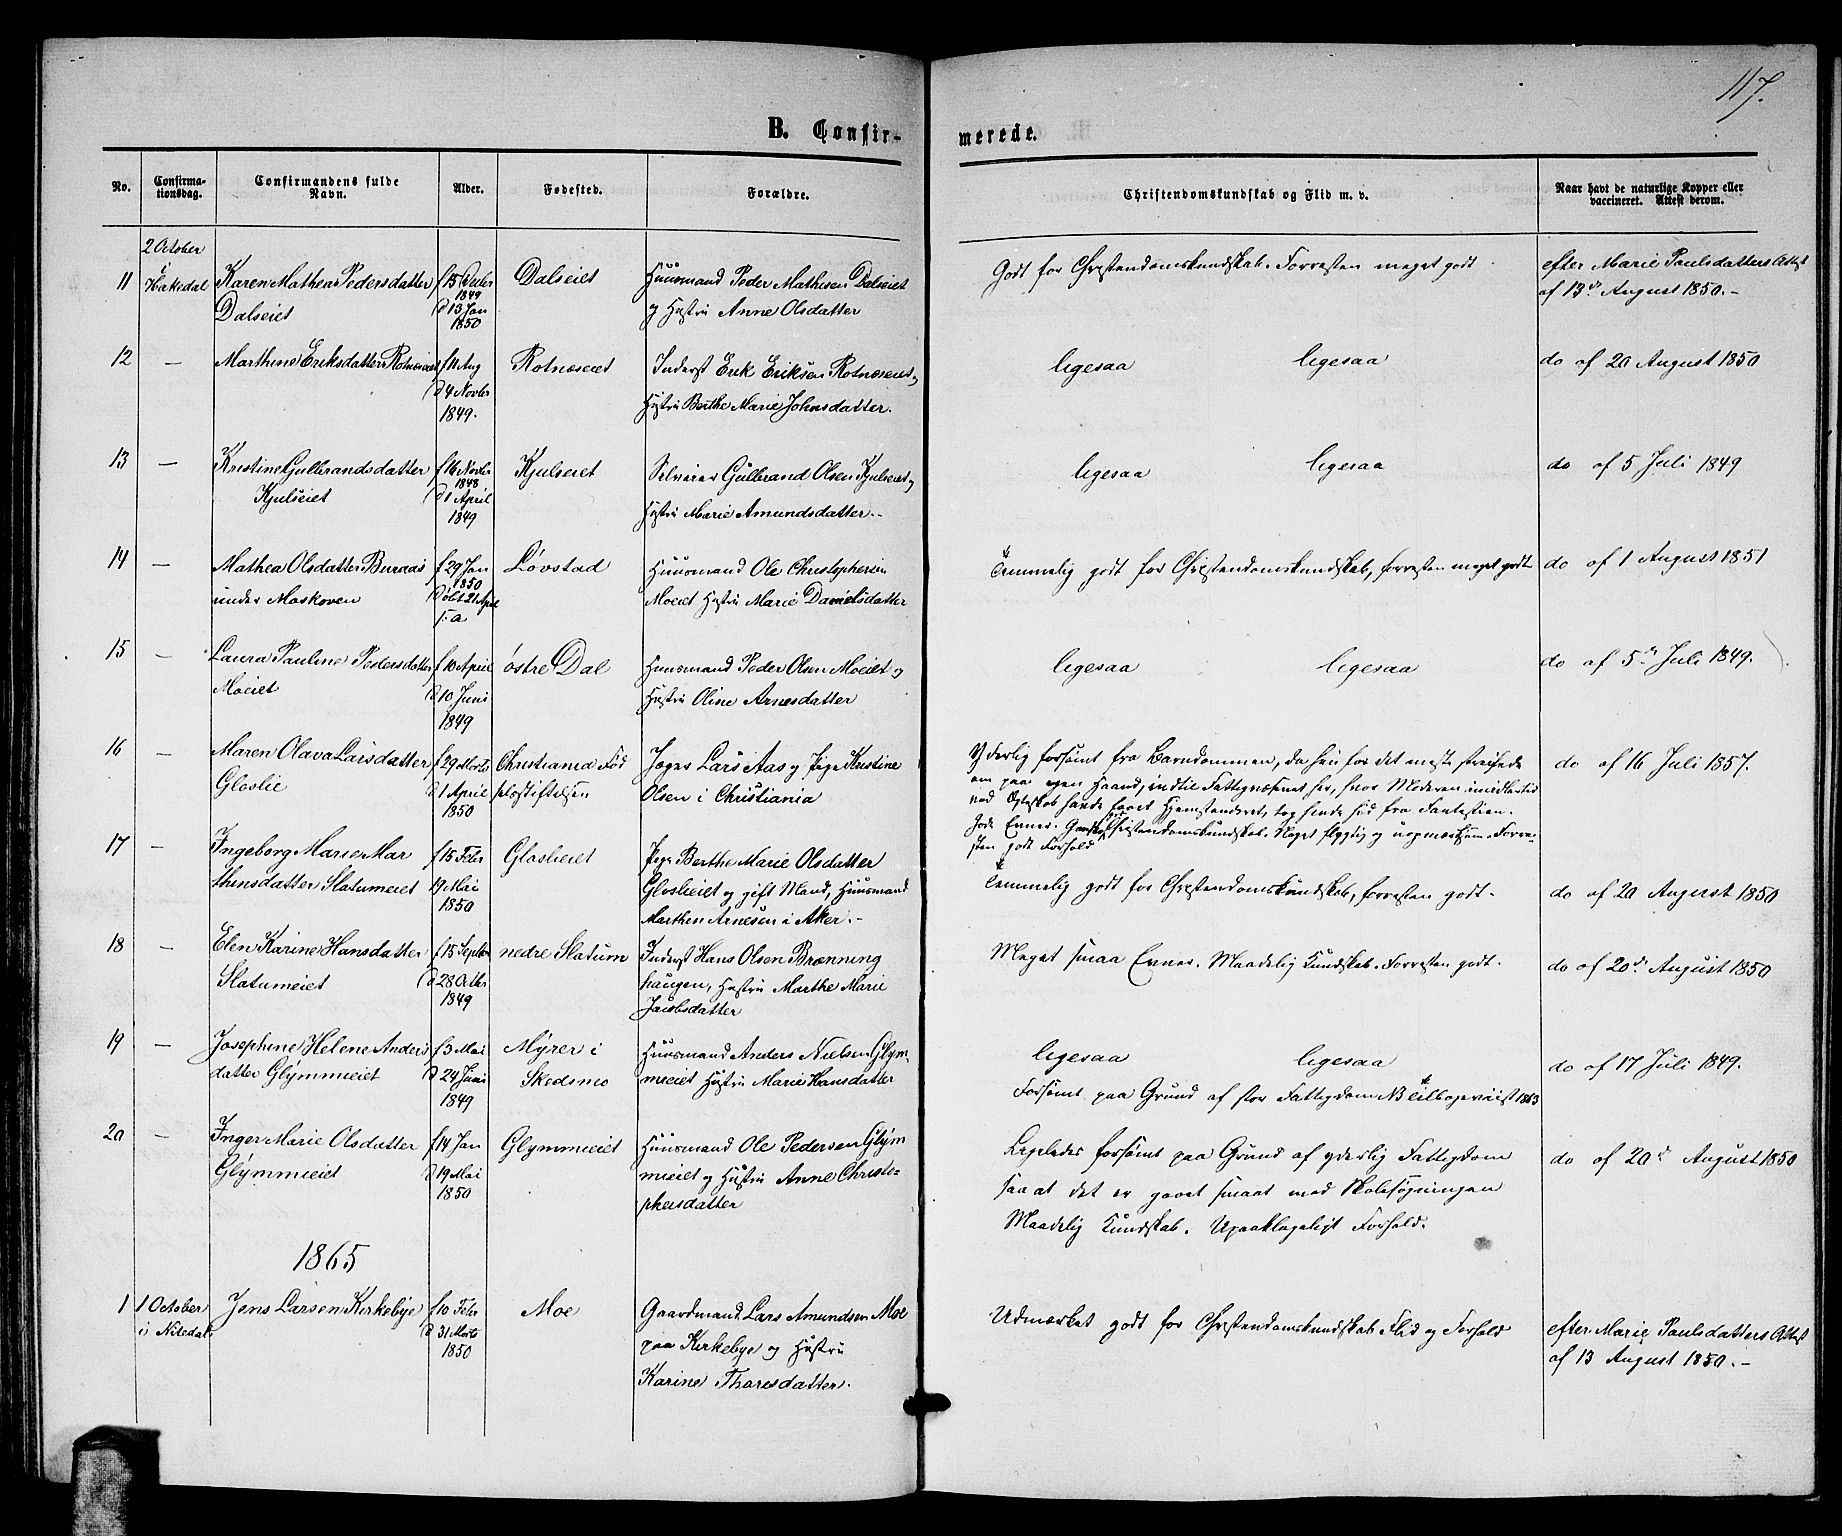 117.
B. Confir-
merede.
No.
Confirma-
tionsdag.
Confirmandens fulde
Navn.
Alder.
Fødested.
Forældre.
Christendomskundskab og Flid m. v.
Naar havt de naturlige Kopper eller
vaccineret. Attest derom.
2 October
i
11 Hakedal Karen Mathea Pedersdatter f 15 Decbr Dalseiet Huusmand Peder Mathisen Dalseiet Godt for Christendomskundskab. Forresten meget godt efter Marie Paulsdatters Attest
Dalseiet 1849 d 13 Jan 1850 og Hustru Anne Olsdatter af 13de August 1850.-
12 — Marthine Eriksdatter Rotnæseiet f 11 Aug Rotnæseiet Inderst Erik Eriksen Rotnæseiet og ligesaa ligesaa do af 20 August 1850
d 4 Novbr 1849. Hustru Berthe Marie Johnsdatter.
13 — Kristine Gulbrandsdatter f 16 Novbr Kjulseiet Selveier Gulbrand Olsen Kjulseiet og ligesaa ligesaa do af 5 Juli 1849
Kjulseiet 1848 d 1 April 1849 Hustru Marie Amundsdatter.-
14 — Mathea Olsdatter Buraas f 29 Jan Løvstad Huusmand Ole Christophersen Temmelig godt for Christendomskundskab, forresten meget godt do af 1 August 1851
under Moskoven 1850 døbt 21 April s. a Moeiet Hustru Marie Danielsdatter
15 — Laura Pauline Pedersdatter f 10 April østre Dal Huusmand Peder Olsen Moeiet og ligesaa ligesaa do af 5te Juli 1849.
Moeiet d 10 Juni 1849 Hustru Oline Arnesdatter
16 — Maren Olava Larsdatter f 29 Marts Christiania Fød Jæger Lars Aas og Pige Kristine Yderlig forsømt fra Barndommen, da hun for det meste streifede do af 16 Juli 1857.
Gloslie d 1 April 1850 selsstiftelsen Olsen i Christiania om paa egen Haand, indtil Fattigvæsenet her, hvor Moderen imidlertid
ved Ægteskab havde faaet Hjemstavnsret, tog hende hid fra Fantestien.
Gode Evner. Godt Christendomskundskab. Noget flygtig og uopmærksom. Forre-
sten godt Forhold
17 — Ingeborg Marie Mar f 15 Febr Gloslieiet Pige Berthe Marie Olsdatter Temmelig godt for Christendomskundskab, forresten godt. do af 20 August 1850
thinsdatter Slatumeiet 19 Mai 1850 Gloslieiet og gift Mand, Huusmand
Marthin Arnesen i Aker.-
18 — Elen Karine Hansdatter f 15 Septbr nedre Slatum Inderst Hans Olsen Brænning Meget smaa Evner. Maadelig Kundskab. Forresten godt. do af 20de August 1850
Slatumeiet d 28 Octbr 1849 haugen, Hustru Marthe Marie
Jacobsdatter
19 — Josephine Helene Anders f 3 Mai Myrer i Huusmand Anders Nielsen Glym- ligesaa ligesaa do af 17 Juli 1849.
datter Glymmeiet d 24 Juni 1849 Skedsmo meiet Hustru Marie Hansdatter
Forsømt paa Grund af stor Fattigdom NB 1863
20 — Inger Marie Olsdatter f 14 Jan Glymmeiet Huusmand Ole Pedersen Glym Ligeledes forsømt paa Grund af yderlig Fattigdom do af 20de August 1850
Glymmeiet d 19 Mai 1850 meiet og Hustru Anne Christo- saa at det er gaaet smaat med Skolesøgningen
phersdatter Maadelig Kundskab. Upaaklageligt Forhold.
1865
1 1 October Jens Larsen Kirkebye f 10 Febr Moe Gaardmand Lars Amundsen Moe Udmærket godt for Christendomskundskab Flid og Forhold efter Marie Paulsdatters Attest
i Nitedal. d 31 Marts 1850 paa Kirkebye og Hustru af 13 August 1850.-
Karine Tharesdatter.